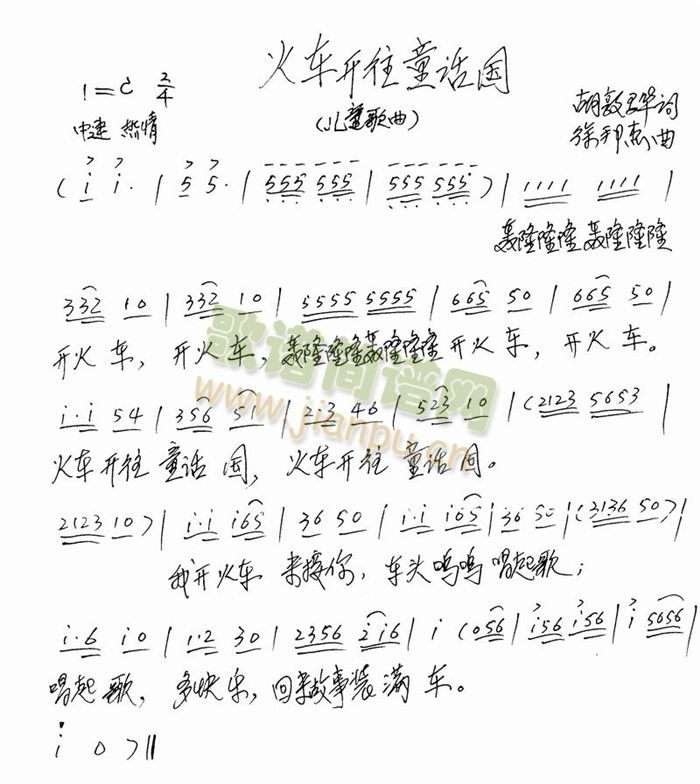 火车开往童话国
1=C 2/4
(儿童歌曲)
胡敦骅词
中速 热情
徐邦杰曲
(i i· | 5 5· | 555 555 | 555 555) | 1111 1111 |
轰隆隆隆轰隆隆隆
332 10 | 332 10 | 5555 5555 | 665 50 | 665 50 |
开火车，开火车，轰隆隆隆轰隆隆隆开火车，开火车。
i·i 54 | 356 51 | 2i3 46 | 523 10 | (2123 5653 |
火车开往童话国，火车开往童话国。
2123 10) | i·i i65 | 36 50 | i·i i65 | 36 50 | (3136 50) |
我开火车来接你，车头呜呜唱起歌；
i·6 i0 | 1·2 30 | 2356 2i6 | i (056 | i56 i56 | i 5656 |
唱起歌，多快乐，回来故事装满车。
i 0) ||
歌谱简谱网
www.jianpu.cn